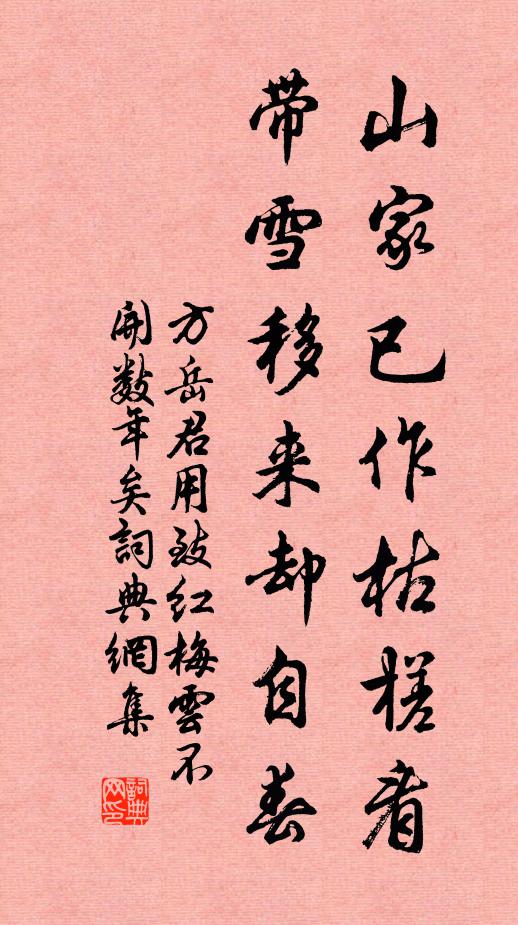 山家已作枯槎看
带雪移来却自春
方岳君用致红梅雲不
開数年矣詞典網集
詞典网印